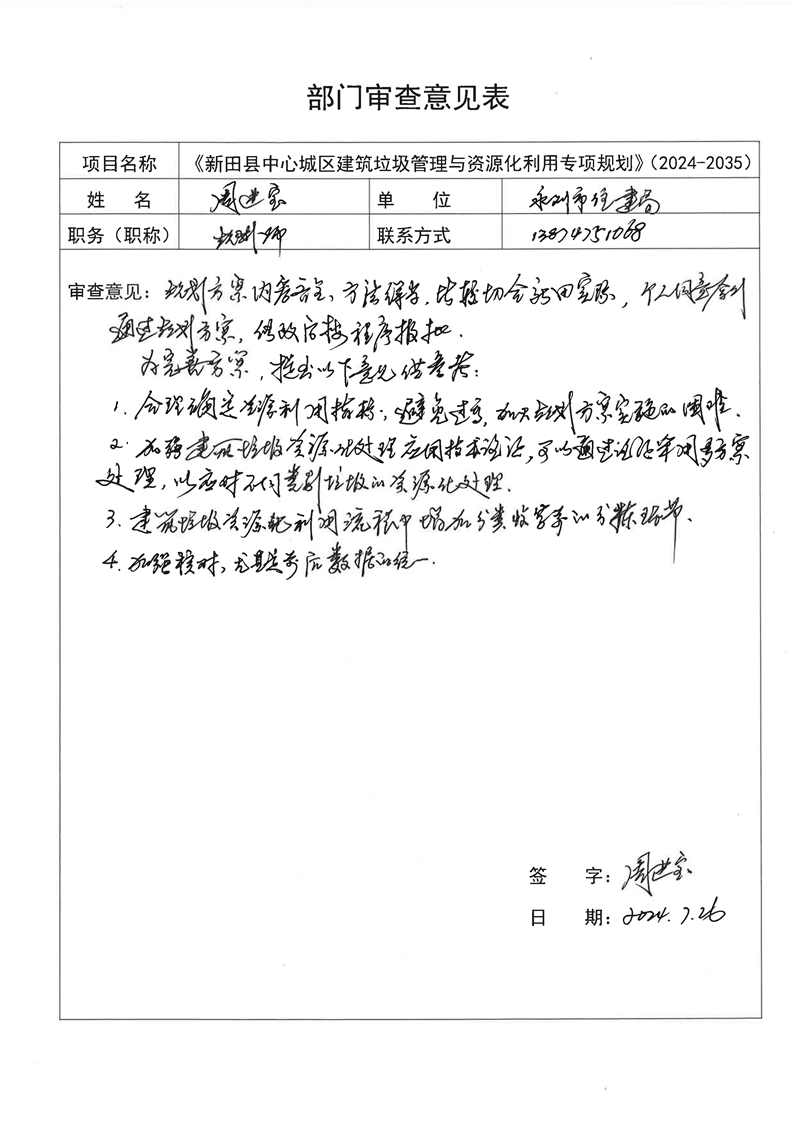 部门审查意见表
项目名称 《新田县中心城区建筑垃圾管理与资源化利用专项规划》（2024-2035）
姓 名 周世宝 单 位 永州市住建局
职务（职称） 规划师 联系方式 13874751068
审查意见：规划方案内容齐全，方法得当，比较切合新田实际，个人同意原则
通过规划方案，修改后按程序报批.
为完善方案，提出以下意见供参考：
1. 合理确定资源利用指标，避免过高，加大规划方案实施的困难.
2. 加强建筑垃圾资源化处理应用技术论证，可以通过论证采用多方案
处理，以应对不同类别垃圾的资源化处理.
3. 建筑垃圾资源化利用流程中增加分类收集等的分拣环节.
4. 加强核对，尤其是前后数据的统一.
签 字：周世宝
日 期：2024.7.26